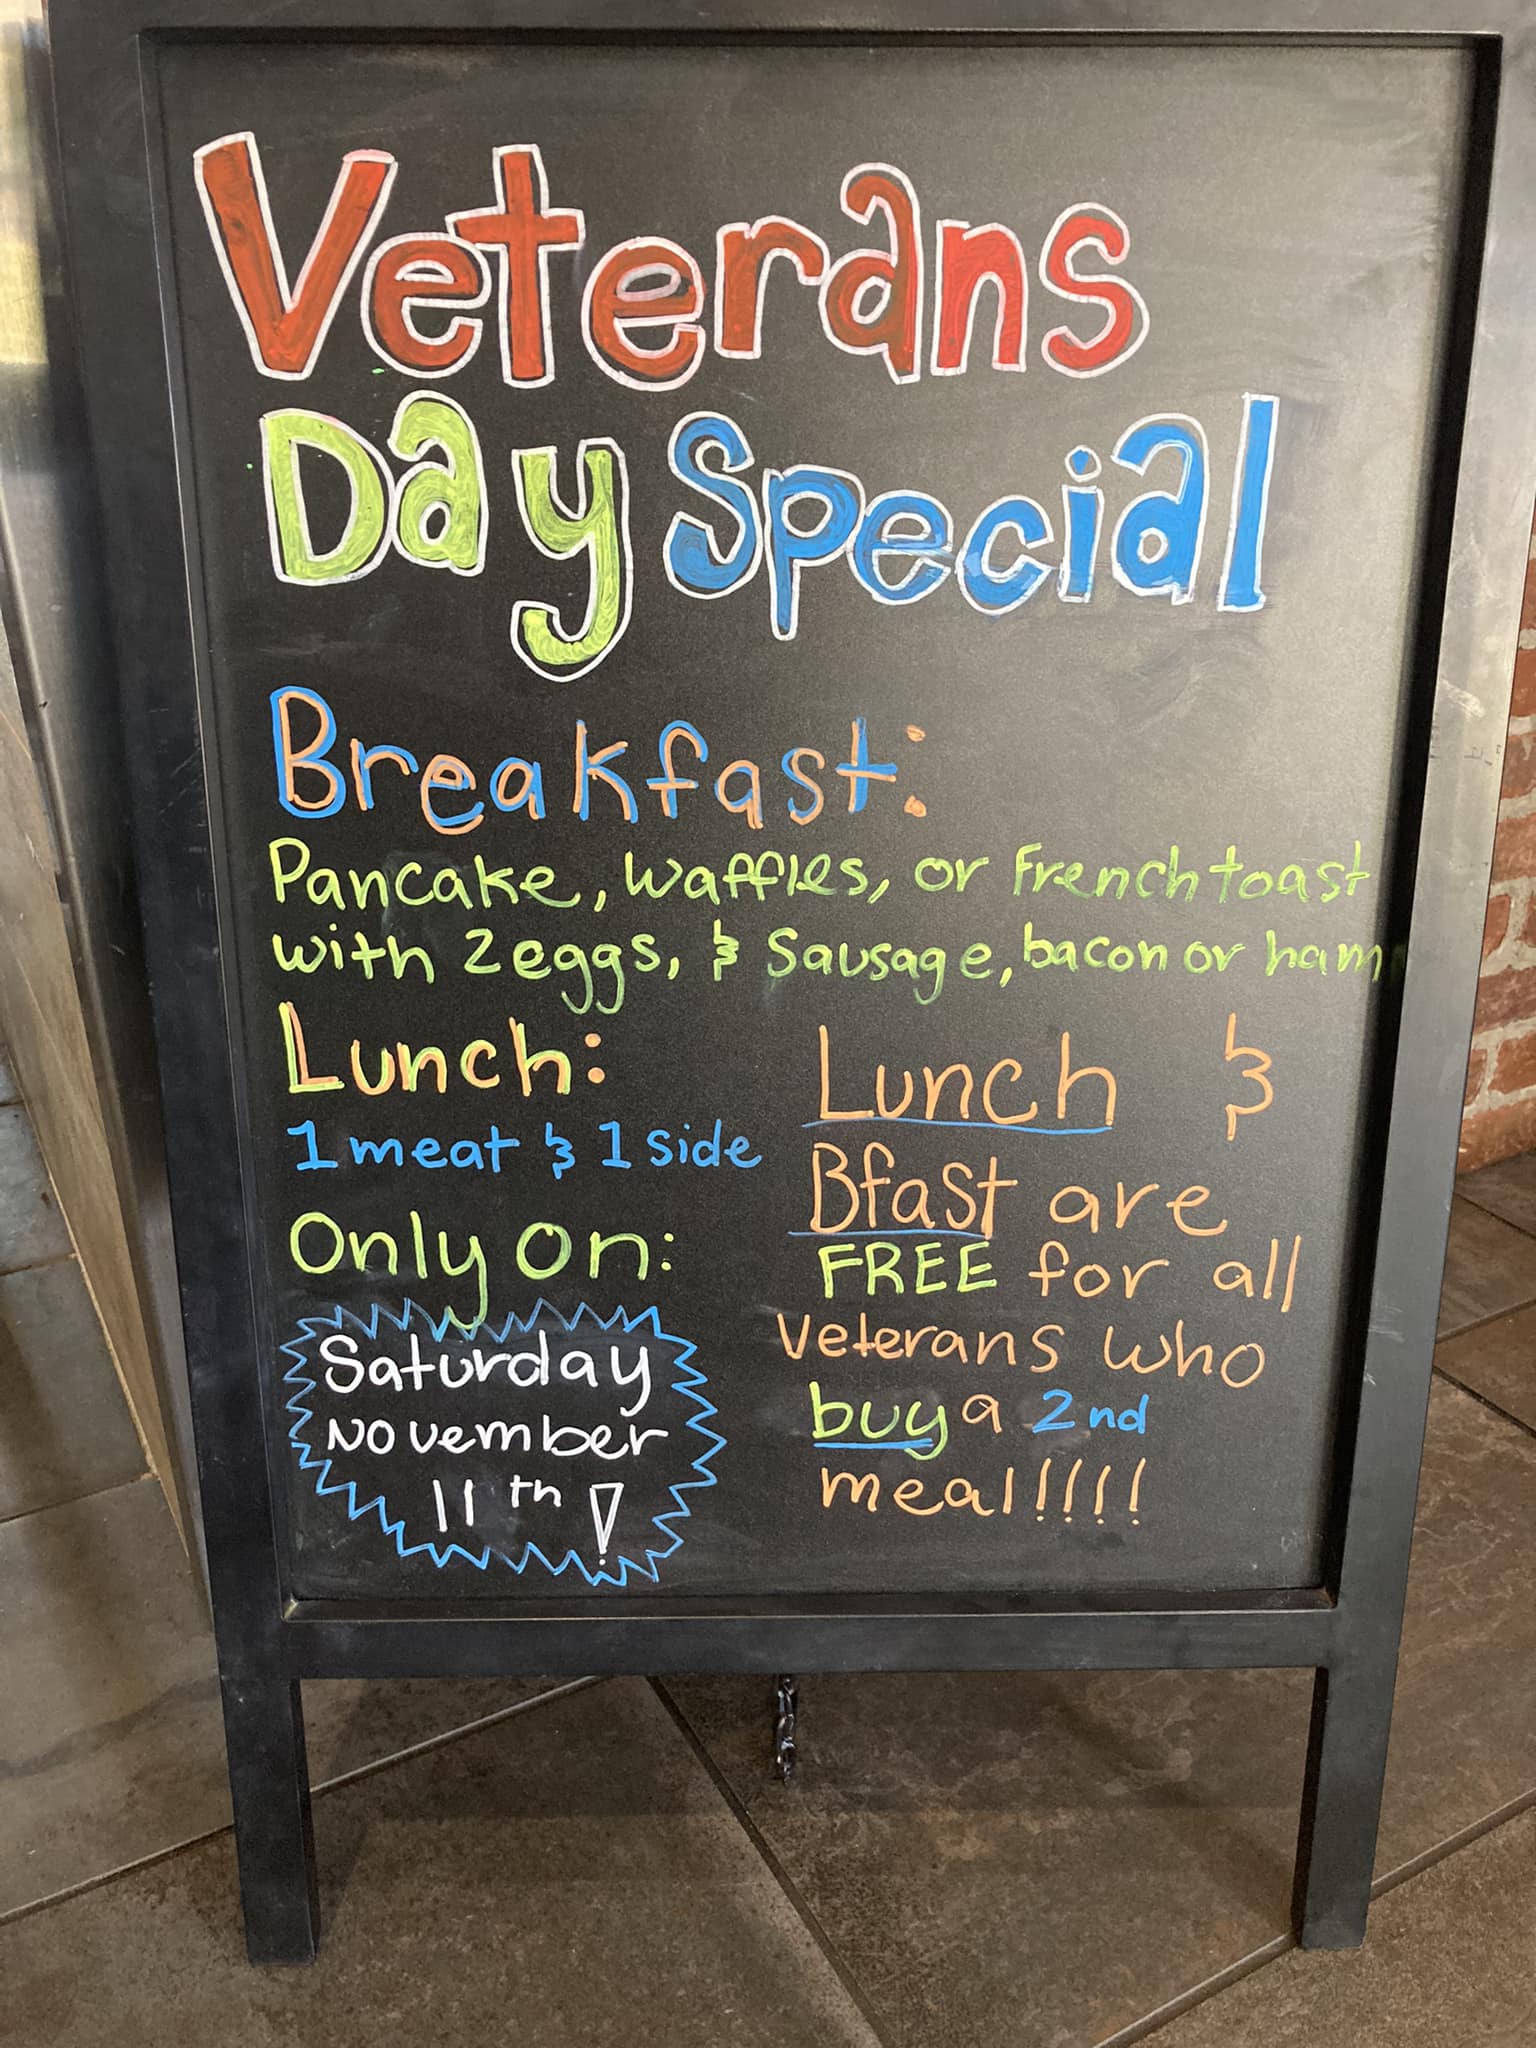 Veterans
Day Special
Breakfast:
Pancake, Waffles, or French toast
with 2 eggs, & Sausage, bacon or ham
Lunch:
1 meat & 1 side
Only on:
Saturday
November
11th!
Lunch &
Bfast are
FREE for all
veterans who
buy a 2nd
meal!!!!!